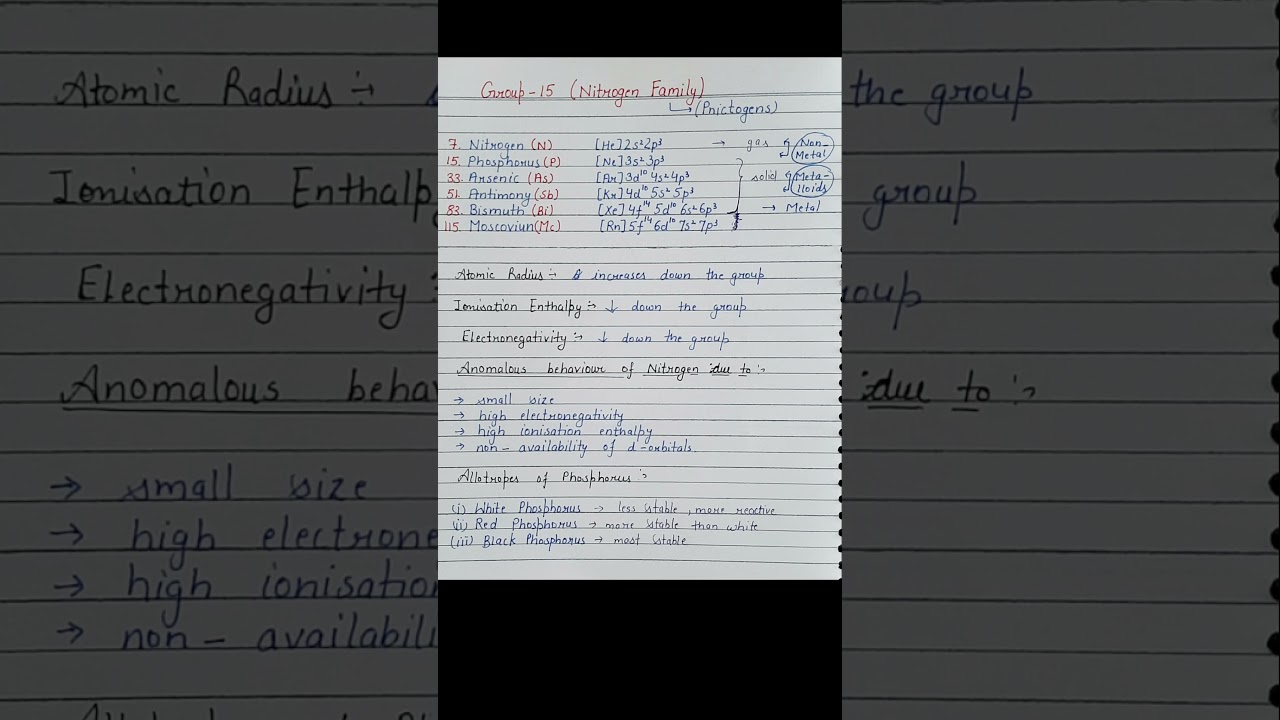 Group-15 (Nitrogen Family)
↳ (Pnictogens)
7. Nitrogen (N) [He] 2s² 2p³ → gas Non-Metal
15. Phosphorus (P) [Ne] 3s² 3p³
33. Arsenic (As) [Ar] 3d¹⁰ 4s² 4p³ solid Meta-lloids
51. Antimony (Sb) [Kr] 4d¹⁰ 5s² 5p³
83. Bismuth (Bi) [Xe] 4f¹⁴ 5d¹⁰ 6s² 6p³ → Metal
115. Moscoviun (Mc) [Rn] 5f¹⁴ 6d¹⁰ 7s² 7p³
Atomic Radius :- increases down the group
Ionisation Enthalpy :- ↓ down the group
Electronegativity :- ↓ down the group
Anomalous behaviour of Nitrogen due to :-
→ small size
→ high electronegativity
→ high ionisation enthalpy
→ non-availability of d-orbitals.
Allotropes of Phosphorus :-
(i) White Phosphorus → less stable, more reactive
(ii) Red Phosphorus → more stable than white
(iii) Black Phosphorus → most stable
Atomic Radius :- the group
Ionisation Enthalp group
Electronegativity :
Anomalous beha due to :-
→ small size
→ high electrone
→ high ionisatio
→ non-availabili